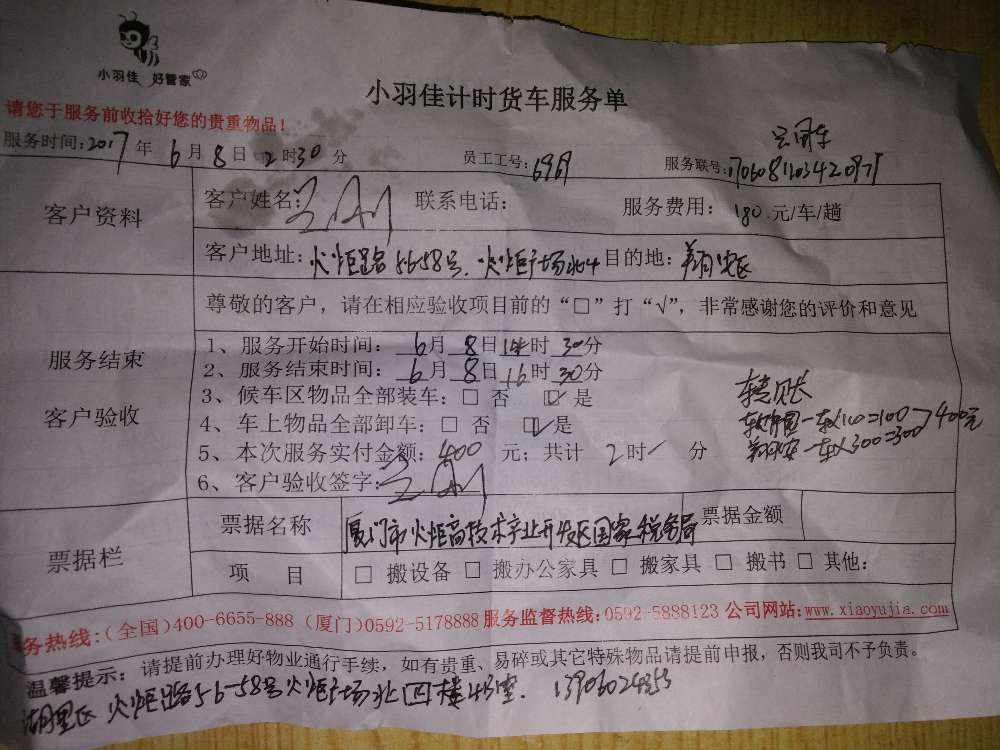 小羽佳 好管家
小羽佳计时货车服务单
请您于服务前收拾好您的贵重物品！
服务时间：2017年6月8日2时30分 员工工号：6969 服务联号：
客户资料
客户姓名： 联系电话： 服务费用：180元/车/趟
客户地址：火炬路56-58号，火炬广场北4 目的地：翔安区
服务结束
客户验收
尊敬的客户，请在相应验收项目前的“□”打“√”，非常感谢您的评价和意见
1、服务开始时间：6月8日14时30分
2、服务结束时间：6月8日16时30分
3、候车区物品全部装车：□ 否 ☑ 是
4、车上物品全部卸车：□ 否 ☑ 是
5、本次服务实付金额：400元；共计2时 分
6、客户验收签字：
转账
一车X100=100
翔安一车X300=300
400元
票据栏
票据名称 厦门市火炬高技术产业开发区国家税务局 票据金额
项 目 □ 搬设备 □ 搬办公家具 □ 搬家具 □ 搬书 □ 其他：
务热线：(全国)400-6655-888 (厦门)0592-5178888 服务监督热线：0592-5888123 公司网站：www.xiaoyujia.com
温馨提示：请提前办理好物业通行手续，如有贵重、易碎或其它特殊物品请提前申报，否则我司不予负责。
湖里区 火炬路56-58号火炬广场北四楼